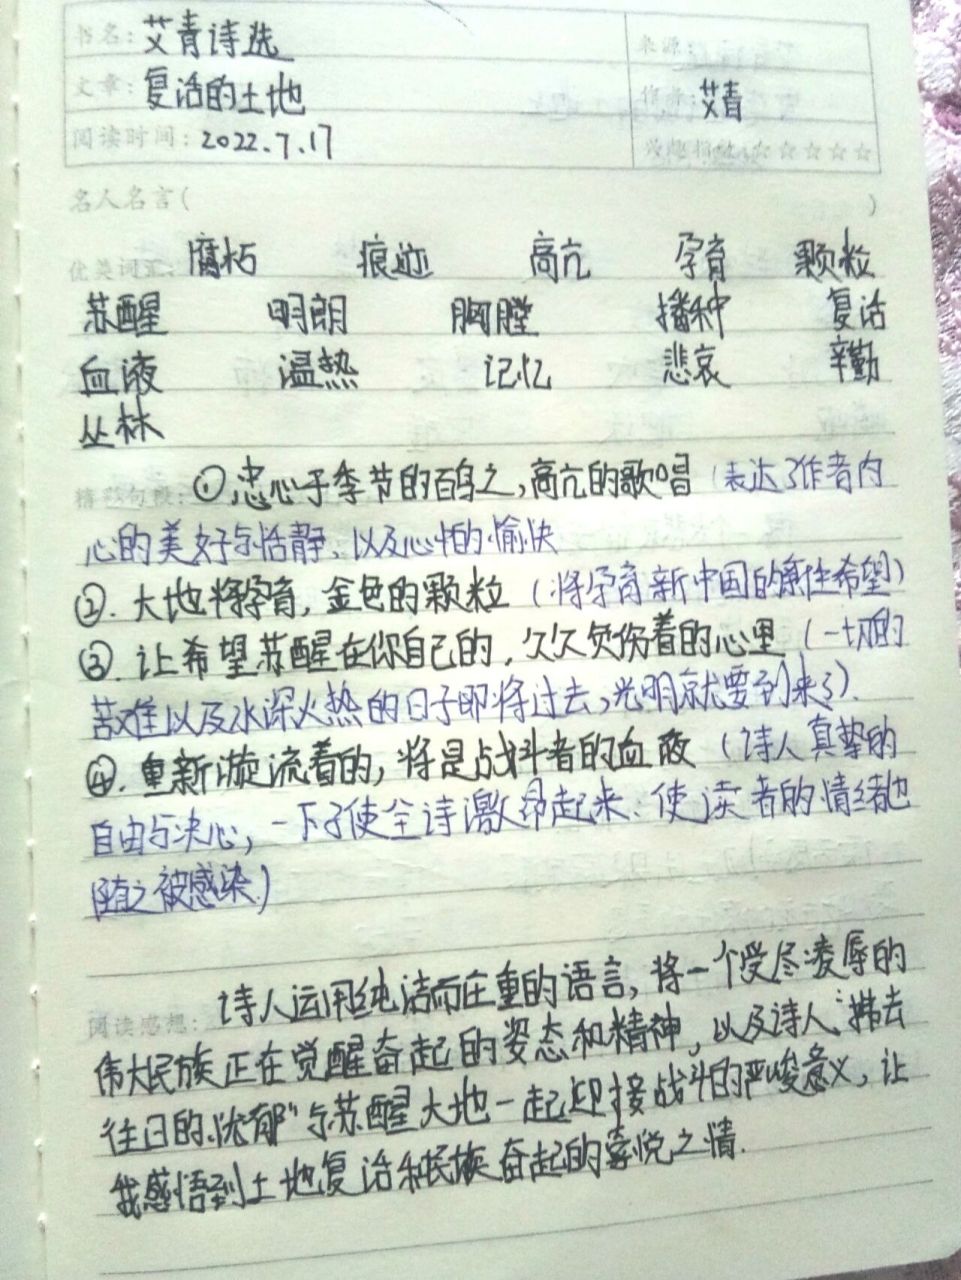 书名：艾青诗选 来源：
文章：复活的土地 作者：艾青
阅读时间：2022.7.17 兴趣指数：☆☆☆☆☆
名人名言（ ）
优美词汇：腐朽 痕迹 高亢 孕育 颗粒
苏醒 明朗 胸膛 播种 复活
血液 温热 记忆 悲哀 辛勤
丛林
精彩句段：①忠心于季节的百鸟之，高亢的歌唱（表达了作者内
心的美好与恬静、以及心情的愉快
②.大地将孕育，金色的颗粒（将孕育新中国的 希望）
③.让希望苏醒在你自己的，久久负伤着的心里（一切的
苦难以及水深火热的日子即将过去，光明就要到来了）.
④.重新漩流着的，将是战斗者的血液（诗人真挚的
自由与决心，一下子使全诗激昂起来、使读者的情绪也
随之被感染）
阅读感想：诗人运用纯洁而庄重的语言，将一个受尽凌辱的
伟大民族正在觉醒奋起的姿态和精神，以及诗人“拂去
往日的忧郁”与苏醒大地一起迎接战斗的严峻意义，让
我感悟到土地复活和民族奋起的喜悦之情.